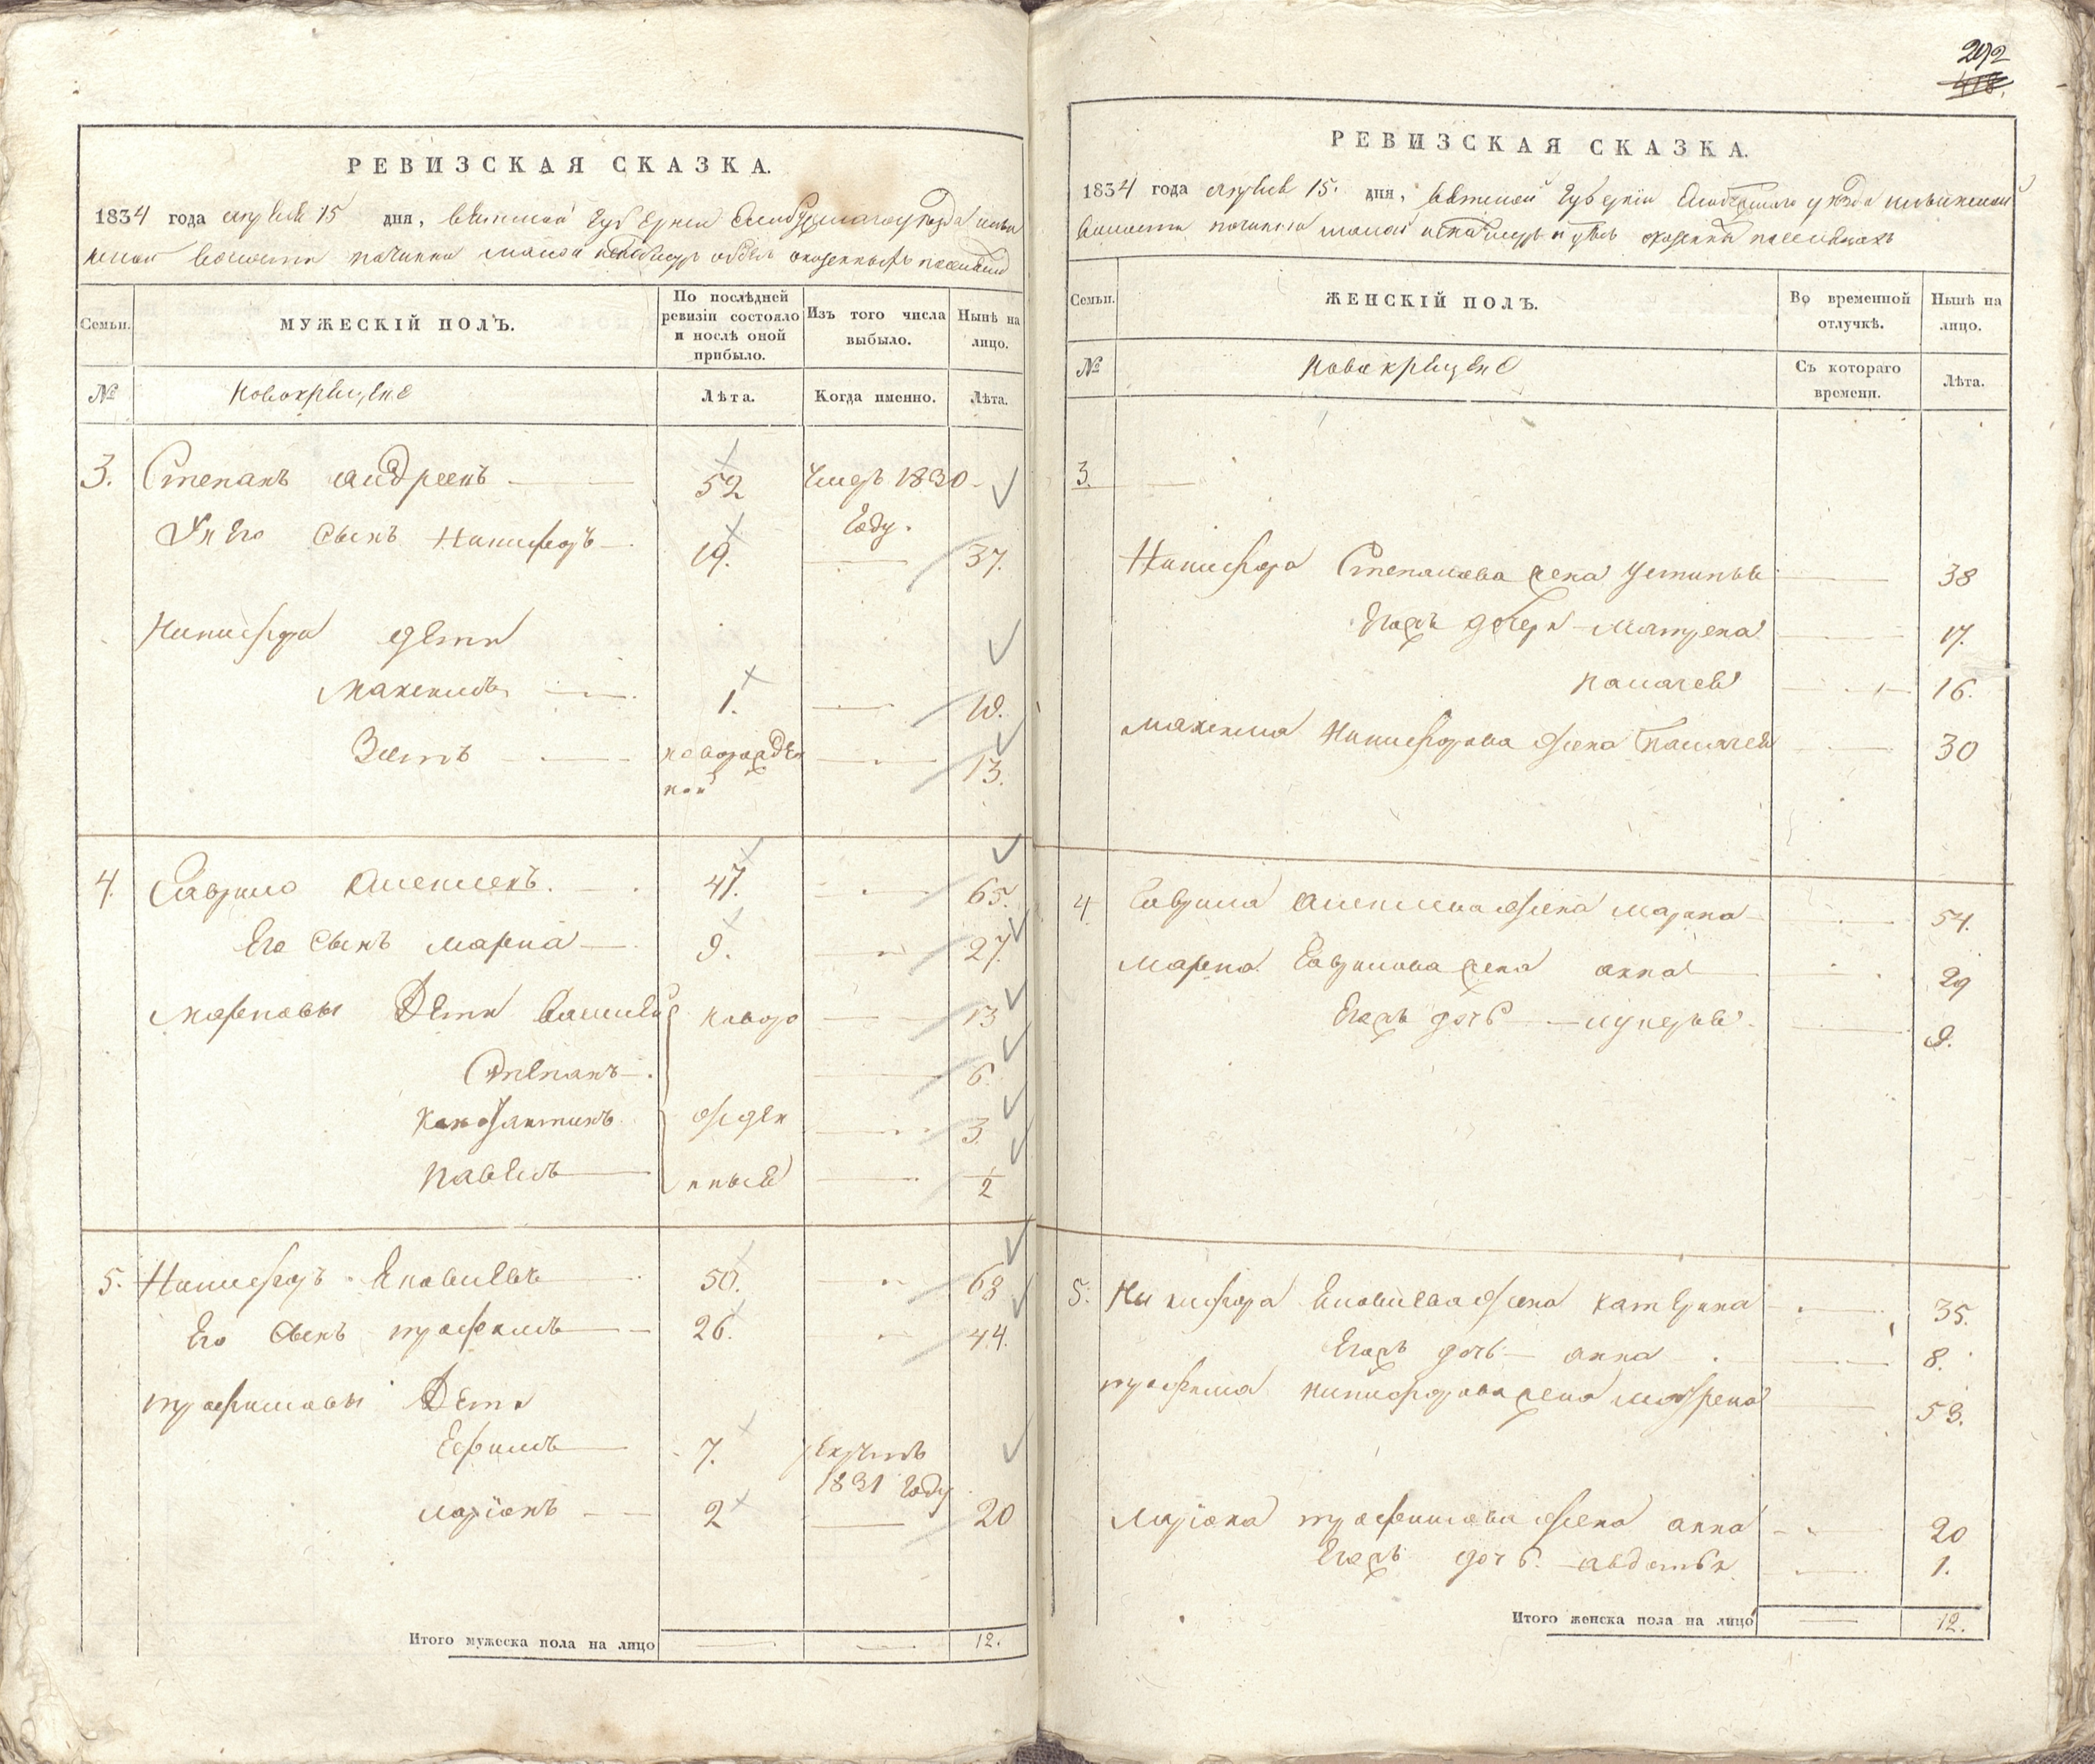 292
418.
РЕВИЗСКАЯ СКАЗКА.
1834 года апреля 15 дня, Вятской губернии Слободского уезда
волости починка малой удел
Семьи.
МУЖЕСКІЙ ПОЛЪ.
По послѣдней ревизіи состояло и послѣ оной прибыло.
Изъ того числа выбыло.
Нынѣ на лицо.
№
новокрещене
Лѣта.
Когда именно.
Лѣта.
3. Степанъ Андреевъ 52 умеръ 1830
году.
У него сынъ Никифоръ 19. 37.
Никифора дети
Максимъ 1. 19.
Зотъ новорожден 13.
ной
4. Гаврило Алексеевъ. 47. 65.
Его сынъ Марка 9. 27.
Марковы дети Василей новоро 13
Степанъ 6.
Константинъ жден 3.
Павелъ ныя 1/2
5. Никифоръ Яковлевъ 50. 68
Его сынъ Трофимъ 26. 44.
Трофимовы дети
Ефимъ 7. рекрутъ
1831 году
Ларіонъ 2 20
Итого мужеска пола на лицо 12.
РЕВИЗСКАЯ СКАЗКА.
1834 года апреля 15. дня, Вятской губерніи Слободского уезда
волости починка малой
Семьи.
ЖЕНСКІЙ ПОЛЪ.
Во временной отлучкѣ.
Нынѣ на лицо.
№
новокрещене
Съ котораго времени.
Лѣта.
3.
Никифора Степанова жена Устинья 38
Ихъ дочери Матрена 17.
Палагея 16.
Максима Никифорова жена Палагея 30
4 Гаврила Алексеева жена Марина 54.
Марка Гаврилова жена Анна 29
Ихъ дочь Лукерья 9.
5. Никифора Яковлева жена Катерина 35.
Ихъ дочь Анна 8.
Трофима Никифорова жена Матрена 53.
Ларіона Трофимова жена Анна 20
Ихъ дочь Авдотья 1.
Итого женска пола на лицо 12.